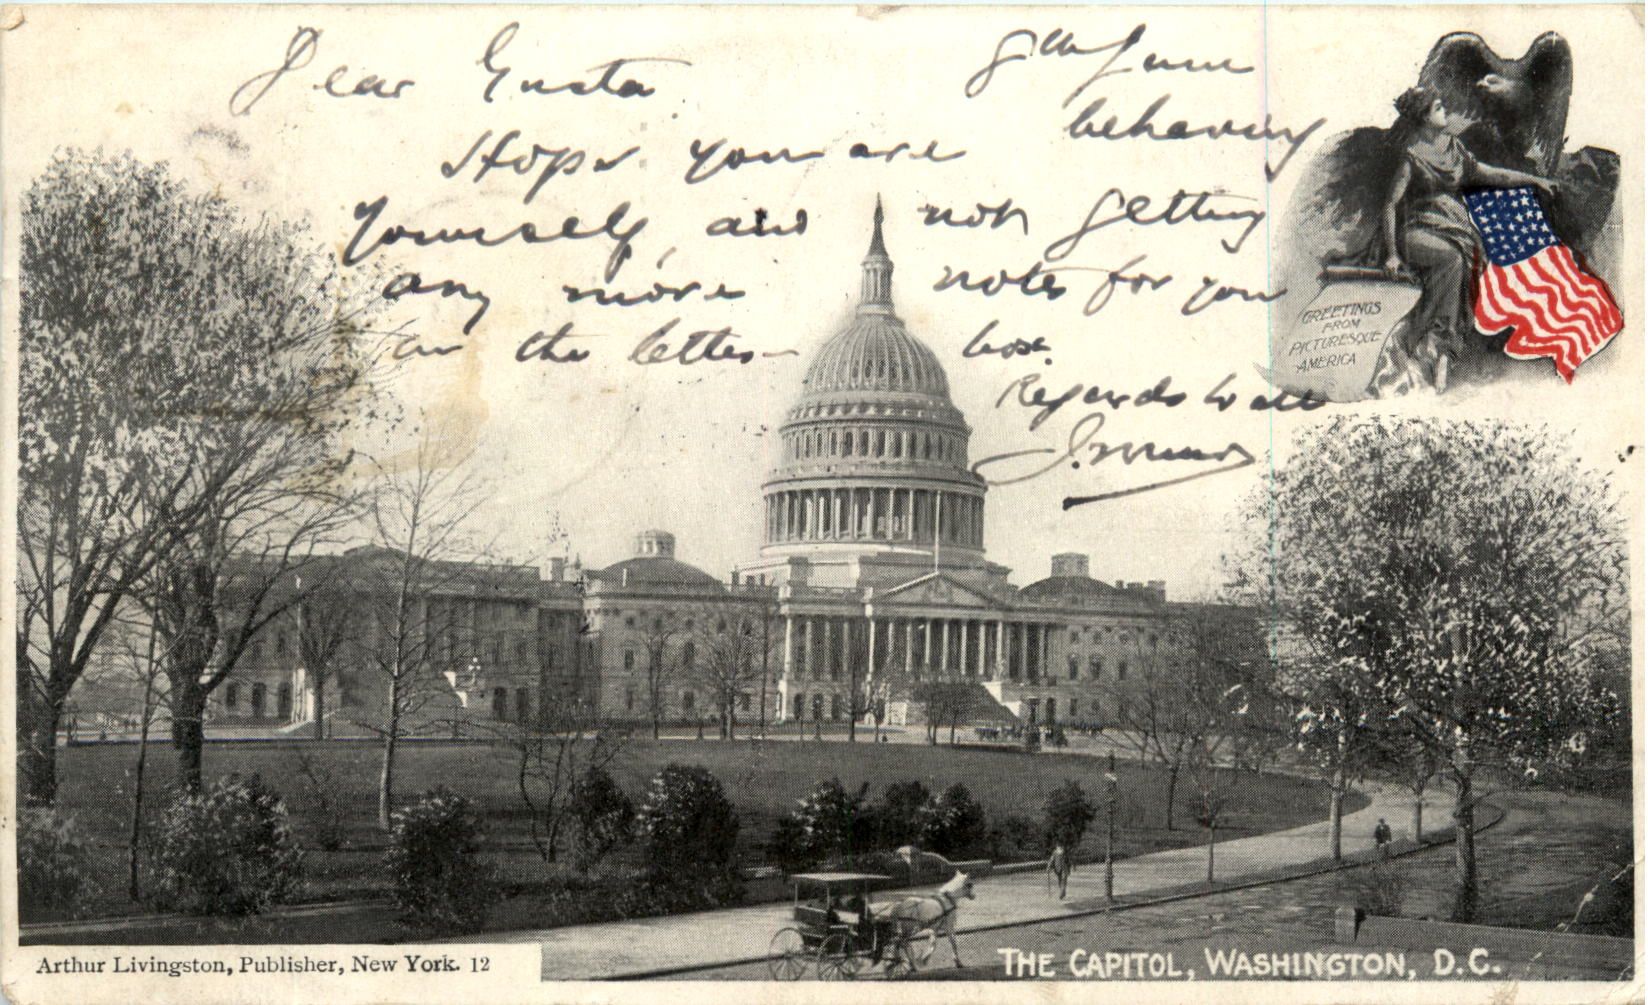 Dear Gusta
Hope you are behaving
yourself, and not getting
any more notes for you
in the letter box.
Regards to all
GREETINGS
FROM
PICTURESQUE
AMERICA
Arthur Livingston, Publisher, New York. 12
THE CAPITOL, WASHINGTON, D.C.